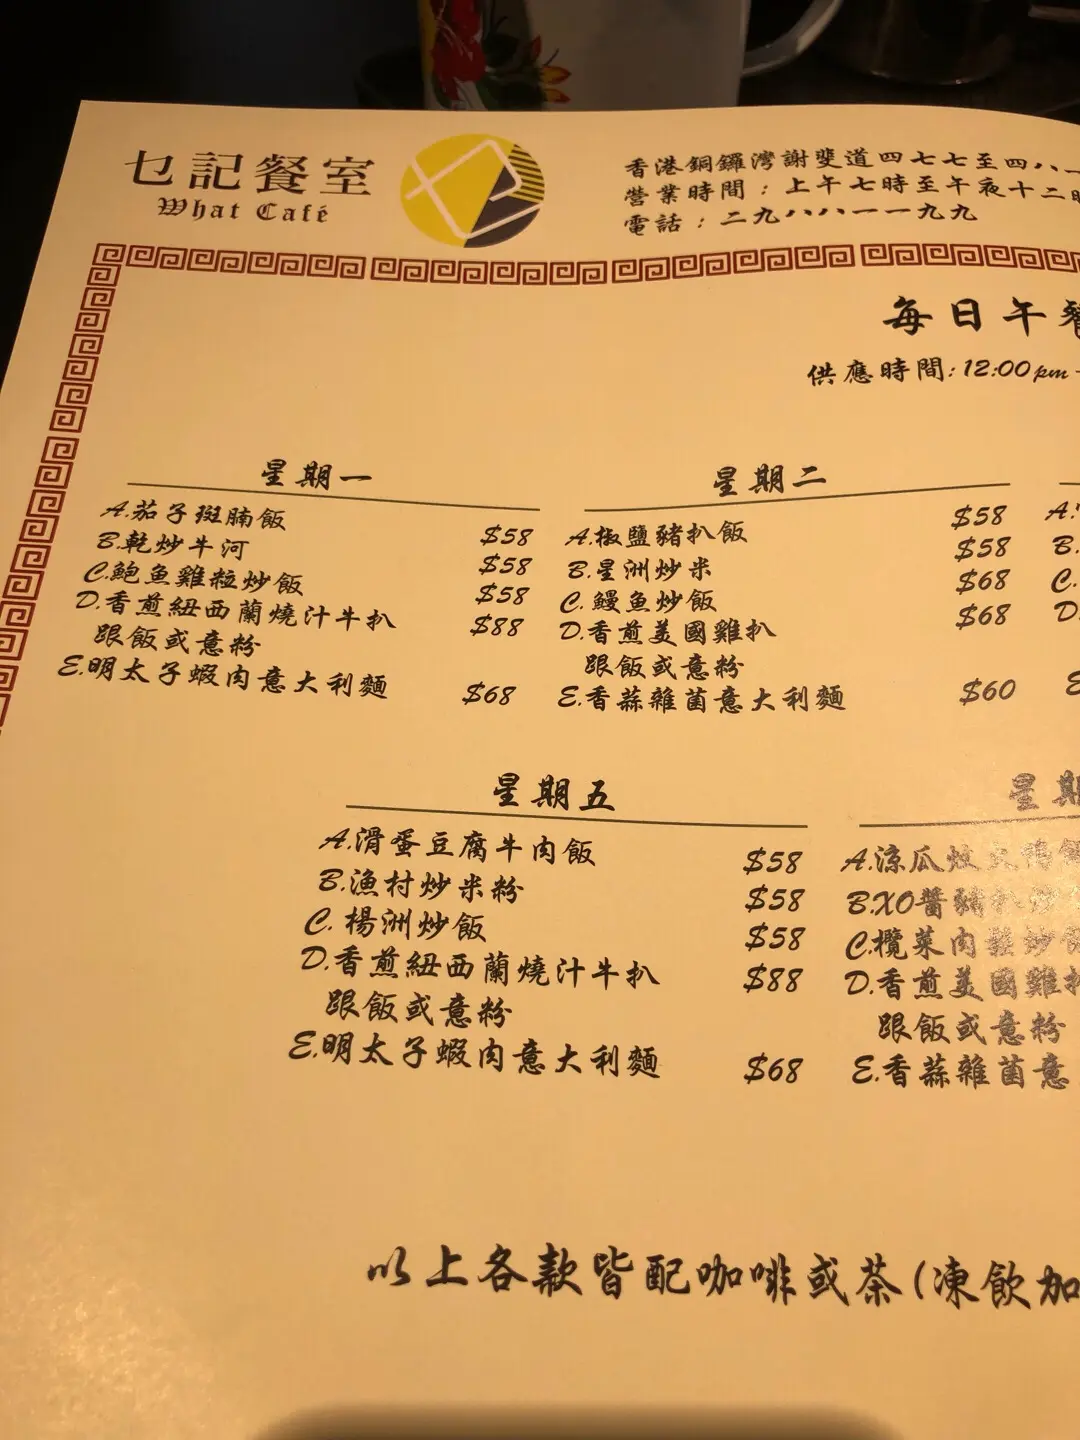 乜記餐室
What Café
香港銅鑼灣謝斐道四七七至四八一
營業時間：上午七時至午夜十二時
電話：二九八八一一九九
每日午餐
供應時間: 12:00 pm -
星期一
A.茄子斑腩飯 $58
B.乾炒牛河 $58
C.鮑魚雞粒炒飯 $58
D.香煎紐西蘭燒汁牛扒 $88
跟飯或意粉
E.明太子蝦肉意大利麵 $68
星期二
A.椒鹽豬扒飯 $58
B.星洲炒米 $58
C.鰻魚炒飯 $68
D.香煎美國雞扒 $68
跟飯或意粉
E.香蒜雜菌意大利麵 $60
A.
B.
C.
D.
E
星期五
A.滑蛋豆腐牛肉飯 $58
B.漁村炒米粉 $58
C.楊洲炒飯 $58
D.香煎紐西蘭燒汁牛扒 $88
跟飯或意粉
E.明太子蝦肉意大利麵 $68
星期
A.涼瓜炆火鴨
B.XO醬豬扒炒
C.欖菜肉鬆炒飯
D.香煎美國雞扒
跟飯或意粉
E.香蒜雜菌意
以上各款皆配咖啡或茶(凍飲加